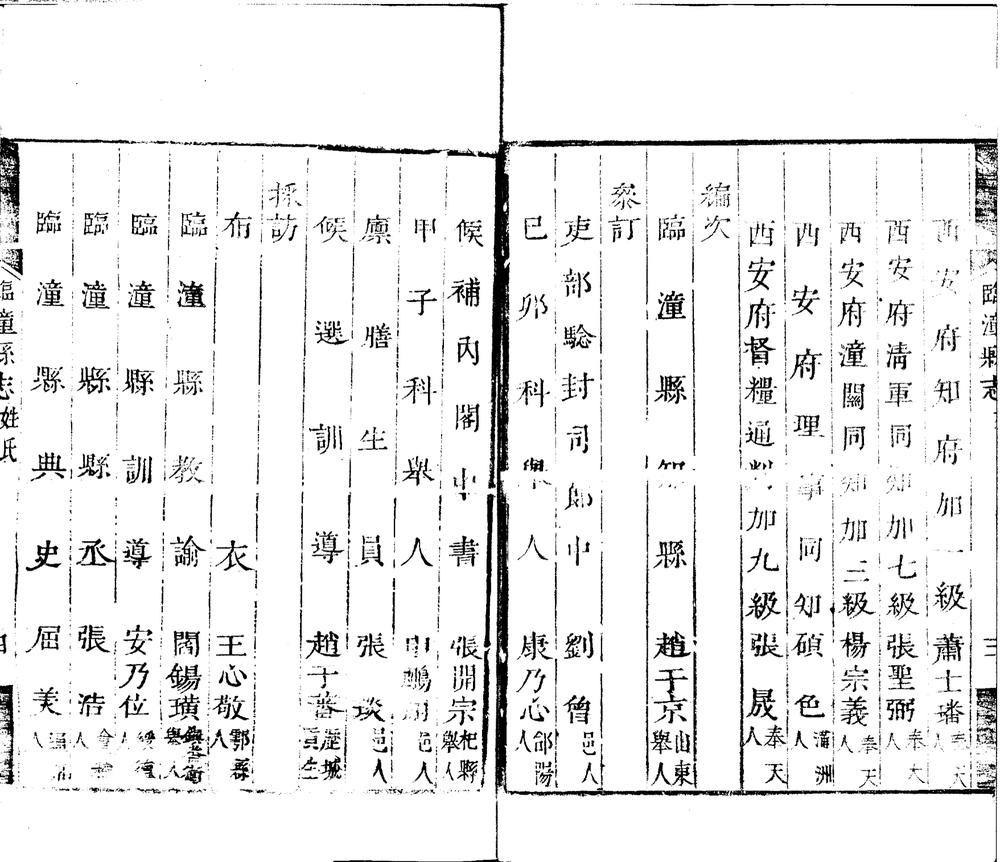 臨潼縣志
三
西安府知府加一級蕭士璠奉天人
西安府清軍同知加七級張聖弼奉天人
西安府潼關同知加二級楊宗義奉天人
西安府理事同知碩色滿洲人
西安府督糧通判加九級張晟奉天人
編次
臨潼縣知縣趙于京山東舉人
叅訂
吏部驗封司郎中劉僧邑人
己卯科舉人康乃心郃陽人
候補內閣中書張開宗杞縣舉人
甲子科舉人申鵬翮邑人
廩膳生員張琰邑人
候選訓導趙于蕃歷城貢生
採訪
布衣王心敬鄠縣人
臨潼縣教諭閻錫璜舉人
臨潼縣訓導安乃位綏德人
臨潼縣縣丞張浩會人
臨潼縣典史屈美人
臨潼縣志
姓氏
四